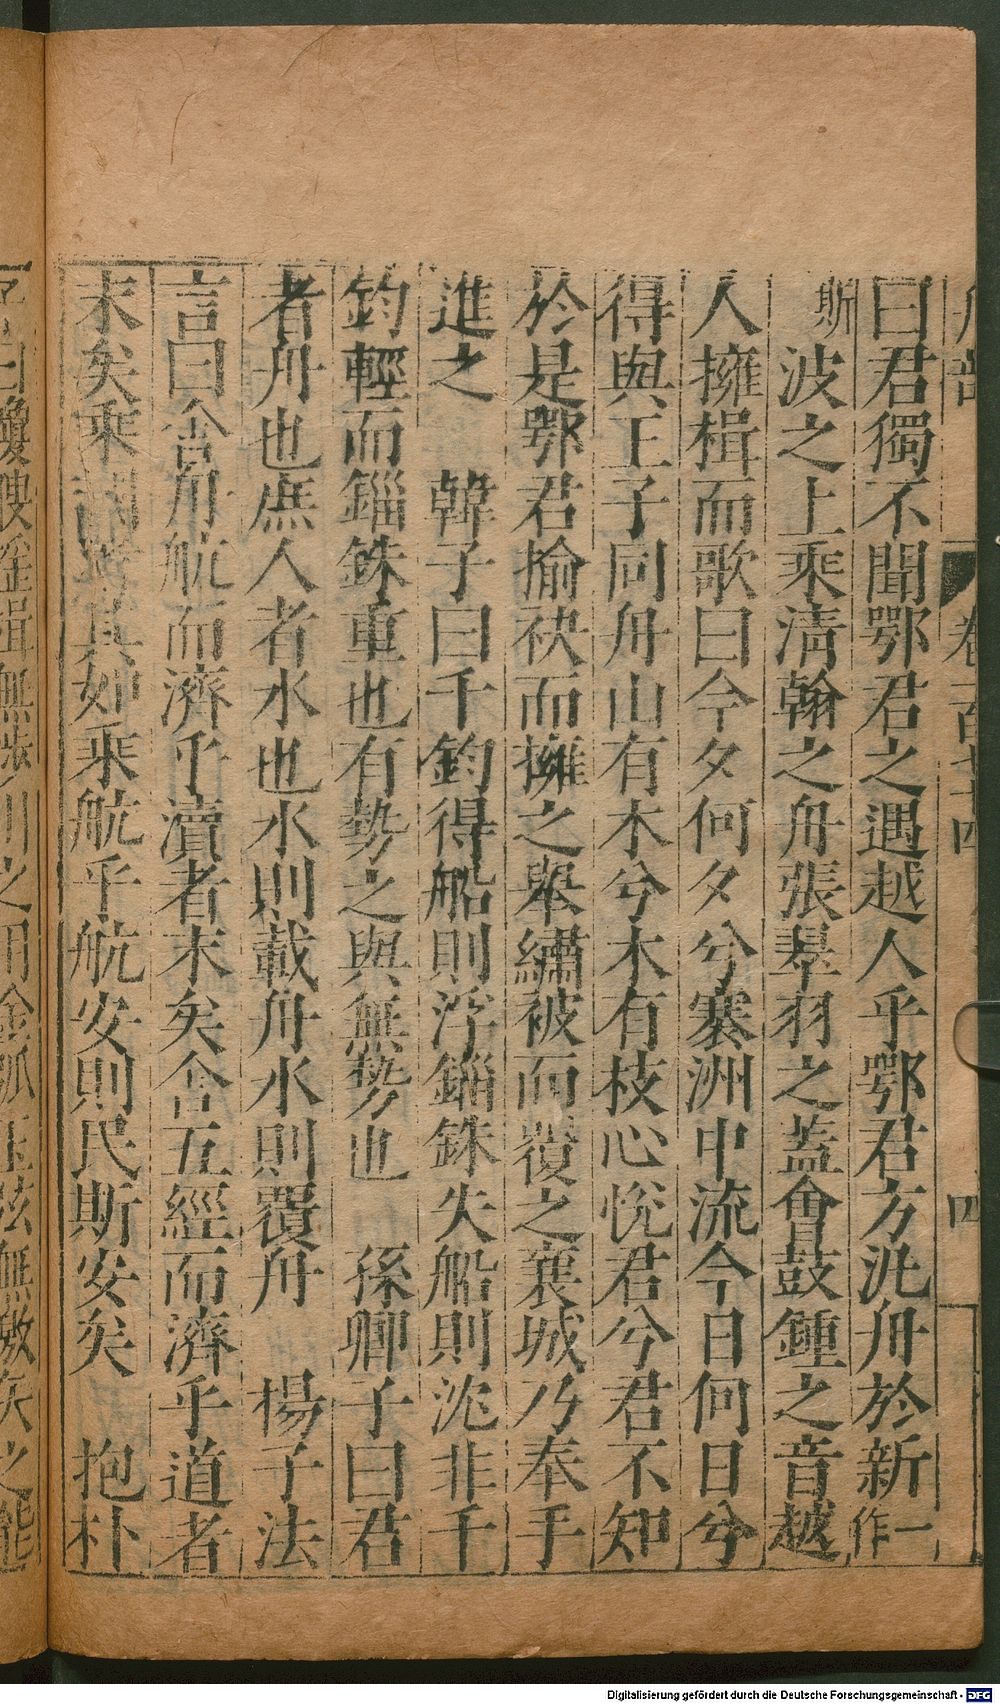 舟部 卷一百廿四 四
曰君獨不聞鄂君之遇越人乎鄂君方汎舟於新一作
斯波之上乘淸翰之舟張翠羽之蓋會鼓鍾之音越
人擁楫而歌曰今夕何夕兮搴洲中流今日何日兮
得與王子同舟山有木兮木有枝心悅君兮君不知
於是鄂君揄袂而擁之舉繡被而覆之襄城乃奉手
進之 韓子曰千鈞得船則浮錙銖失船則沈非千
鈞輕而錙銖重也有勢之與無勢也 孫卿子曰君
者舟也庶人者水也水則載舟水則覆舟 楊子法
言曰舍舟航而濟乎瀆者末矣舍五經而濟乎道者
末矣乘國者其如乘航乎航安則民斯安矣 抱朴
之用金弧玉弦無激矢之能
Digitalisierung gefördert durch die Deutsche Forschungsgemeinschaft - DFG